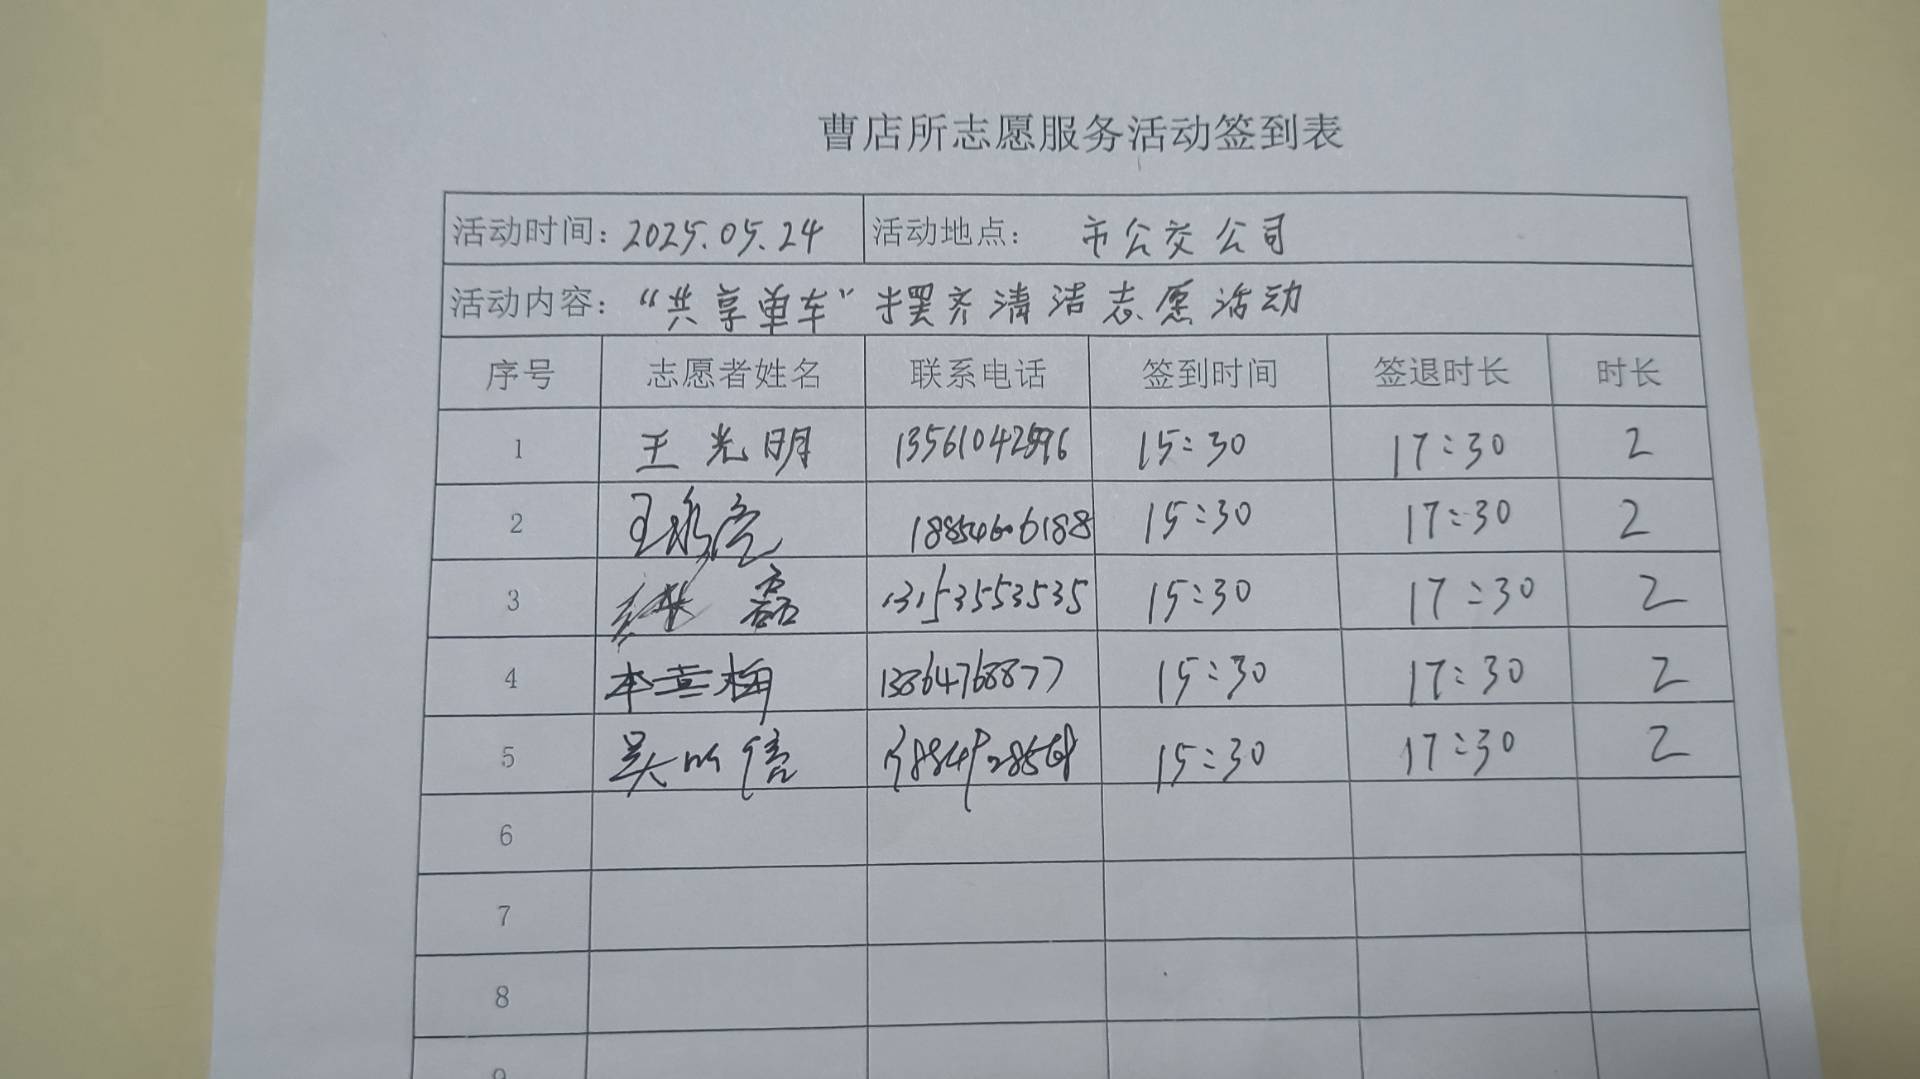 曹店所志愿服务活动签到表
活动时间: 2025.05.24 活动地点: 市公交公司
活动内容: “共享单车”摆齐清洁志愿活动
序号 志愿者姓名 联系电话 签到时间 签退时长 时长
1 王光明 15:30 17:30 2
2 王 18854606188 15:30 17:30 2
3 磊 13153553535 15:30 17:30 2
4 李喜梅 15:30 17:30 2
5 吴以信 15:30 17:30 2
6
7
8